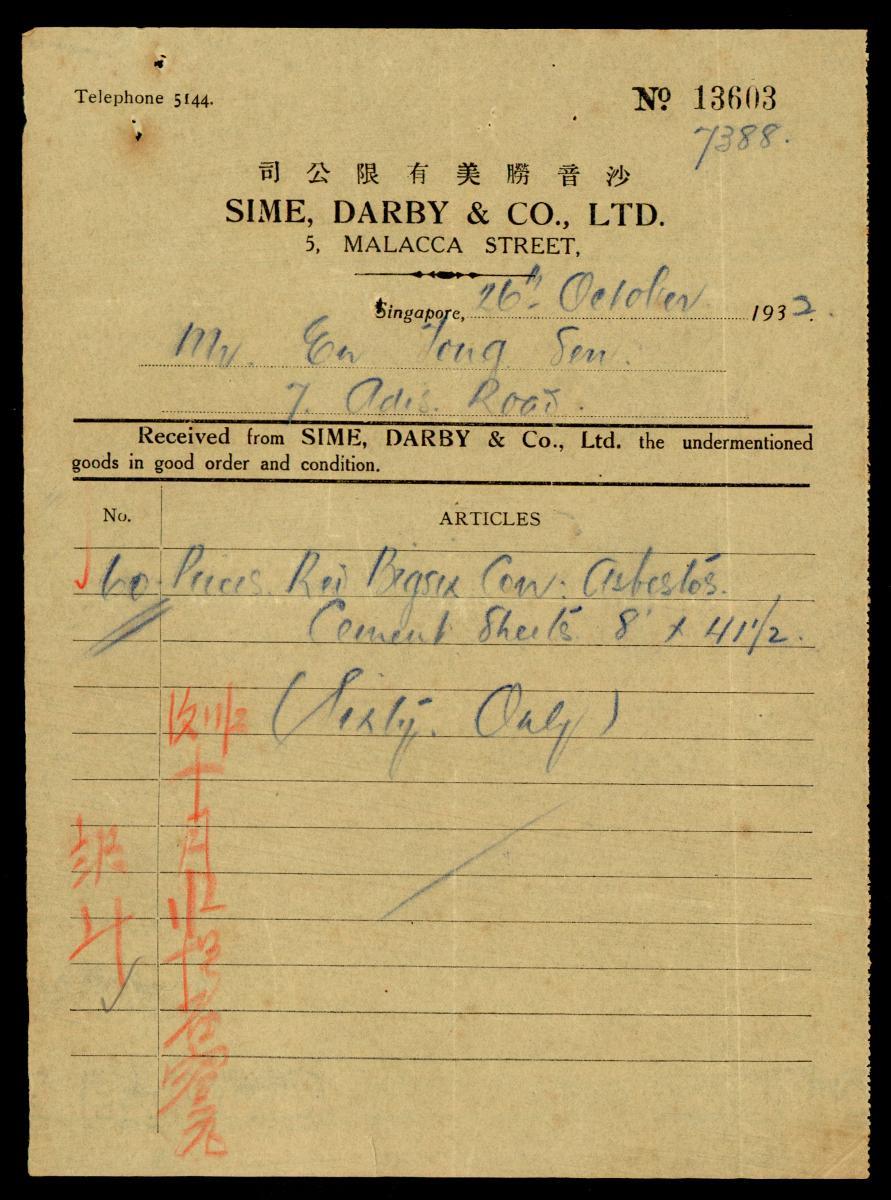 Telephone 5144.
Nº 13603
7388.
司公限有美勝音沙
SIME, DARBY & CO., LTD.
5, MALACCA STREET,
Singapore, 26th October 1932.
Mr. Eu Tong Sen.
7. Adis. Road.
Received from SIME, DARBY & Co., Ltd. the undermentioned
goods in good order and condition.
No. ARTICLES
60. Pieces. Red Bigsix Corr: Asbestos.
Cement Sheets 8' x 41½.
(Sixty. Only)
十月